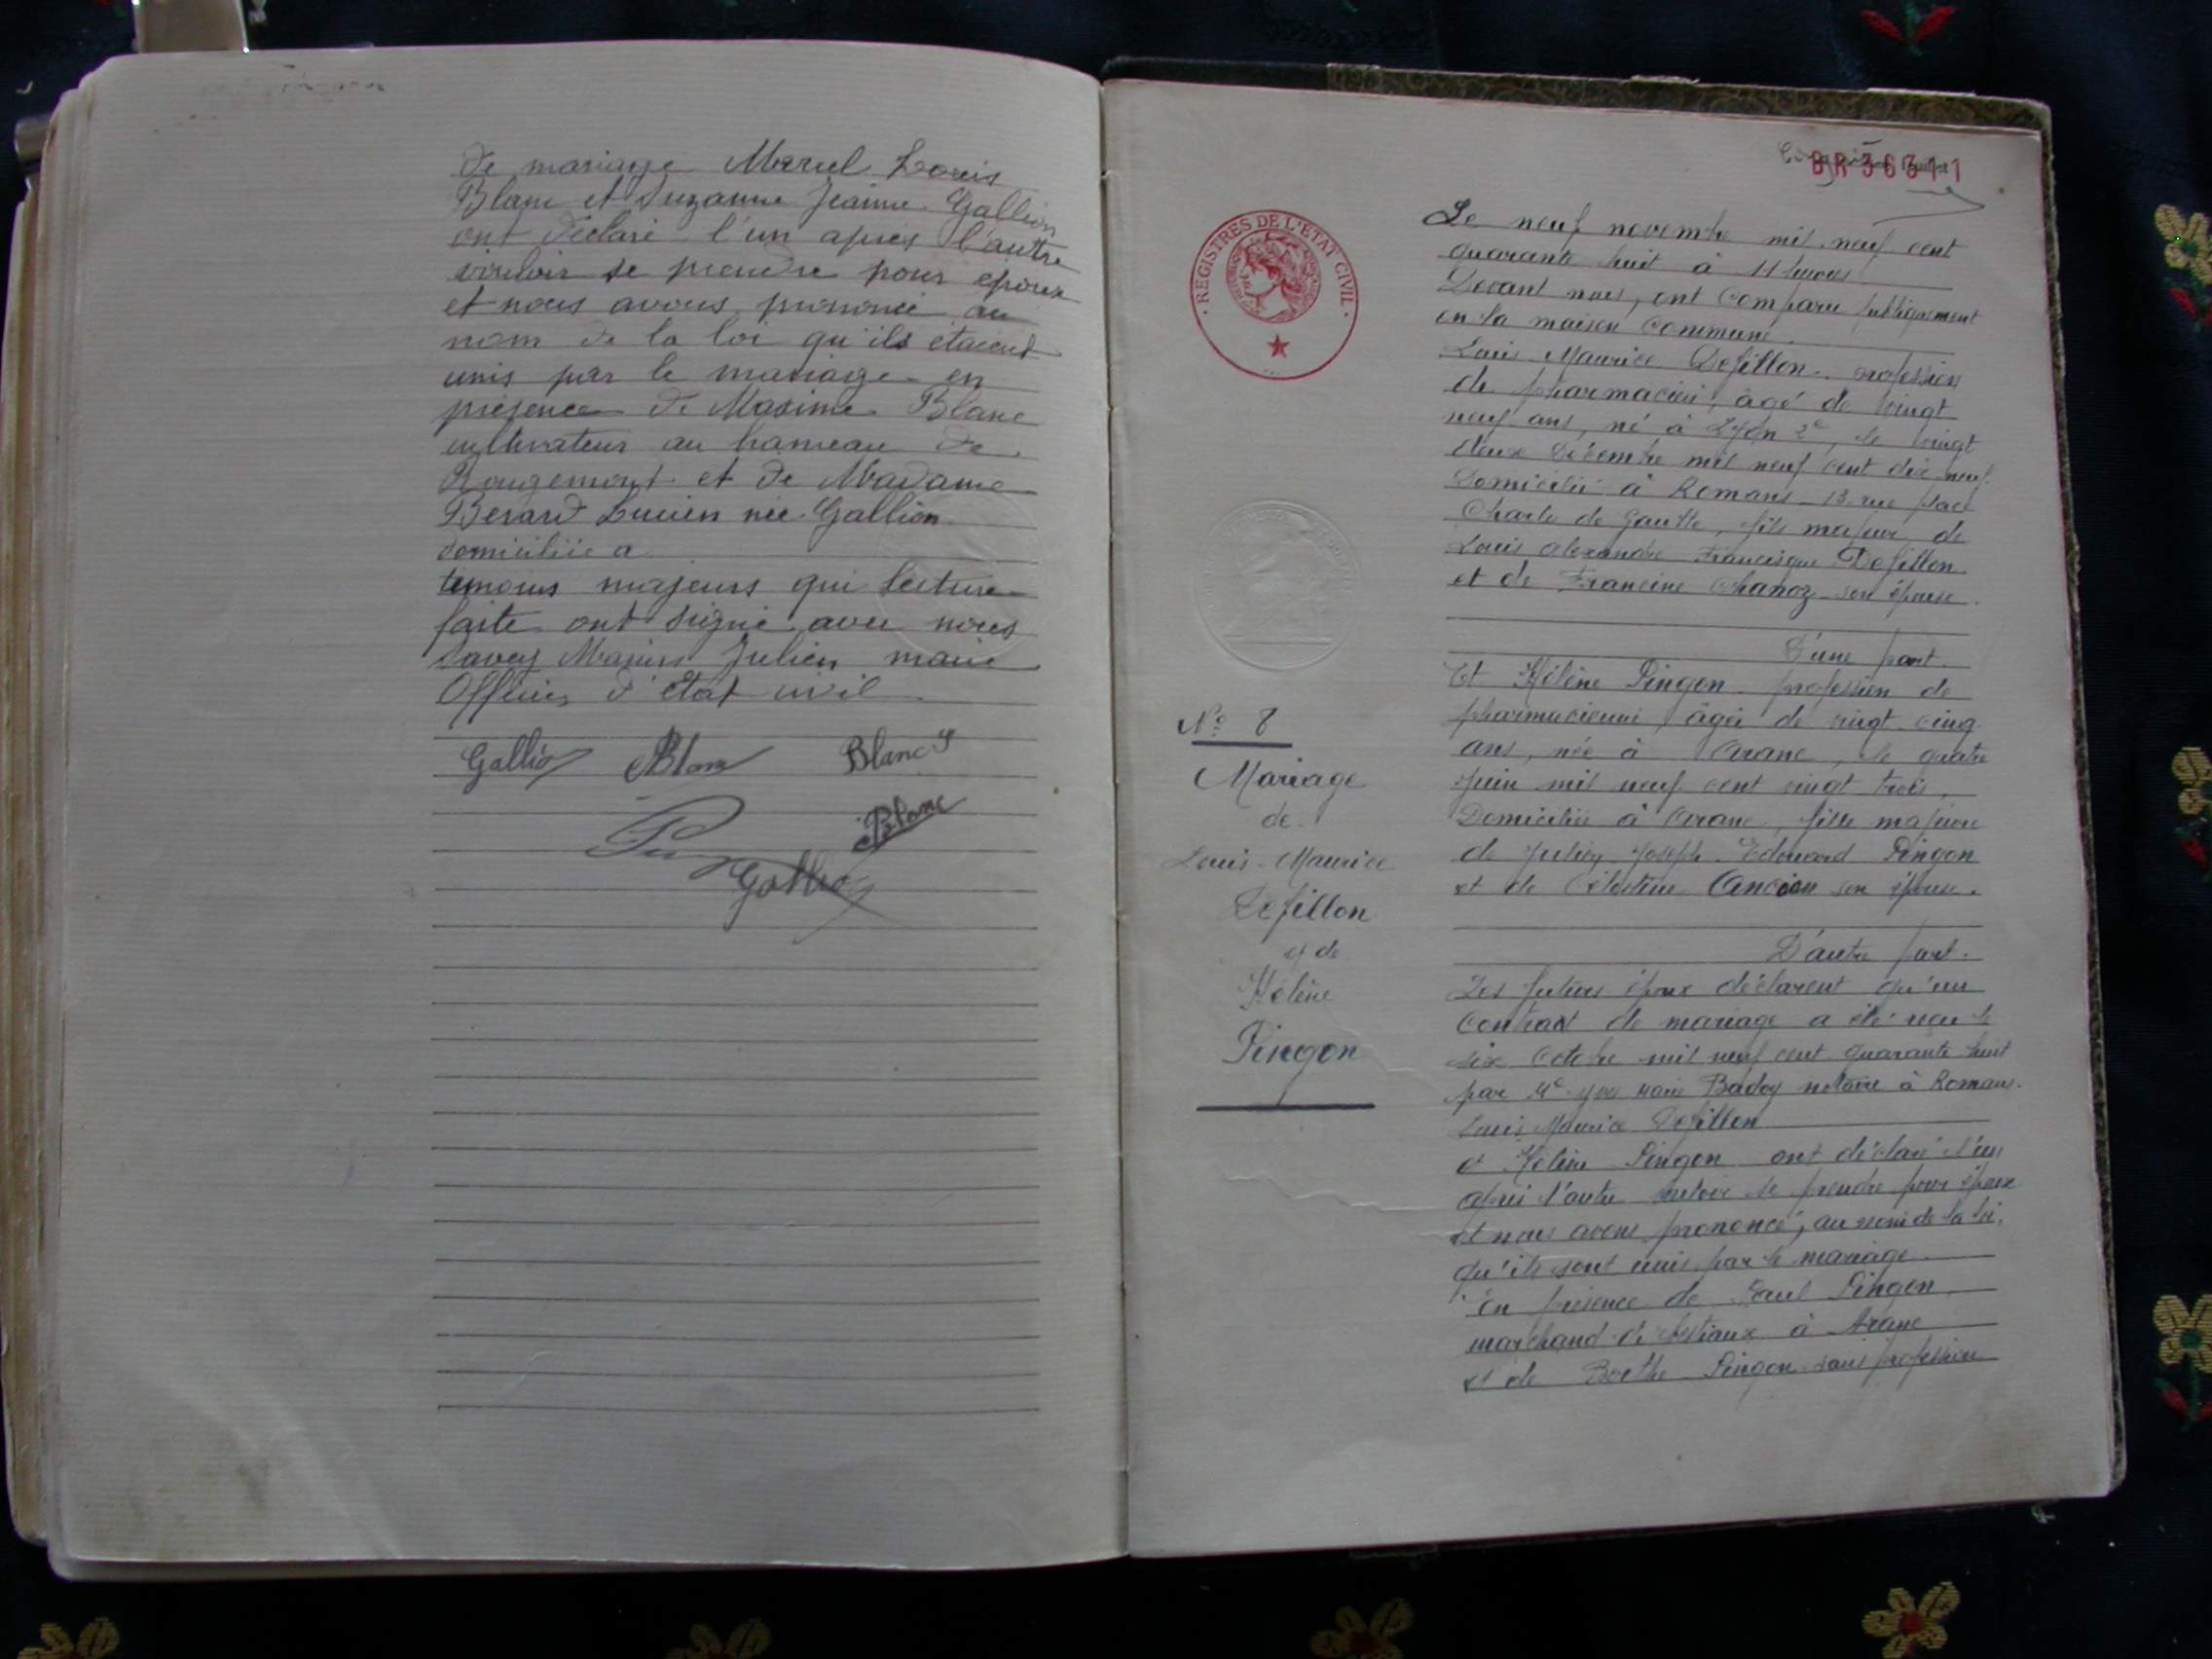 de mariage Marcel Louis
Blanc et Suzanne Jeanne Gallion
ont déclaré l'un après l'autre
vouloir se prendre pour époux
et nous avons prononcé au
nom de la loi qu'ils étaient
unis par le mariage en
présence de Maxime Blanc
cultivateur au hameau de
Rougemont et de Madame
Berard Lucien née Gallion
domiciliée a
témoins majeurs qui lecture
faite ont signé avec nous
Savey Marius Julien maire
Officier d'état civil
Gallion Blanc Blanc S
Blanc
Gallion
BR 36311
REGISTRES DE L'ETAT CIVIL
Le neuf novembre mil neuf cent
quarante huit à 11 heures
Devant nous, ont comparu publiquement
en la maison commune
Louis Maurice Defillon profession
de pharmacien, âgé de vingt
neuf ans, né à Lyon 2e, le vingt
deux Décembre mil neuf cent dix neuf
Domicilié à Romans 13 rue place
Charle de Gaulle, fils majeur de
Louis Alexandre Francisque Defillon
et de Francine Chanoz son épouse.
D'une part.
Et Hélène Pingon profession de
pharmacienne, âgée de vingt cinq
ans, née à Arane, le quatre
Juin mil neuf cent vingt trois,
Domiciliée à Arane, fille majeure
de Julien Joseph Edouard Pingon
et de Célestine Ancian son épouse.
D'autre part.
Les futurs époux déclarent qu'un
Contrat de mariage a été reçu le
six Octobre mil neuf cent quarante huit
par Me Yves Marie Badoy notaire à Romans.
Louis Maurice Defillon
et Hélène Pingon ont déclaré l'un
après l'autre vouloir se prendre pour époux
et nous avons prononcé, au nom de la loi,
qu'ils sont unis par le mariage.
En présence de Paul Pingon,
marchand de bestiaux à Arane
et de Berthe Pingon sans profession
No 8
Mariage
de
Louis-Maurice
Defillon
et de
Hélène
Pingon